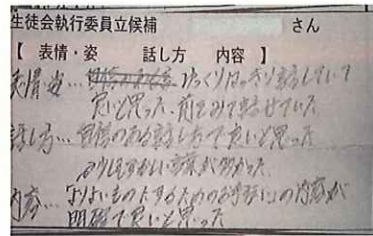 生徒会執行委員立候補 さん
【 表情・姿 話し方 内容 】
表情・姿… ゆっくりはっきり話していて
良いと思った。前をみて話せていた
話し方… 自信のある話し方で良いと思った
少しむずかしい言葉が多かった
内容… よりよいものにするための の内容が
明確で良いと思った